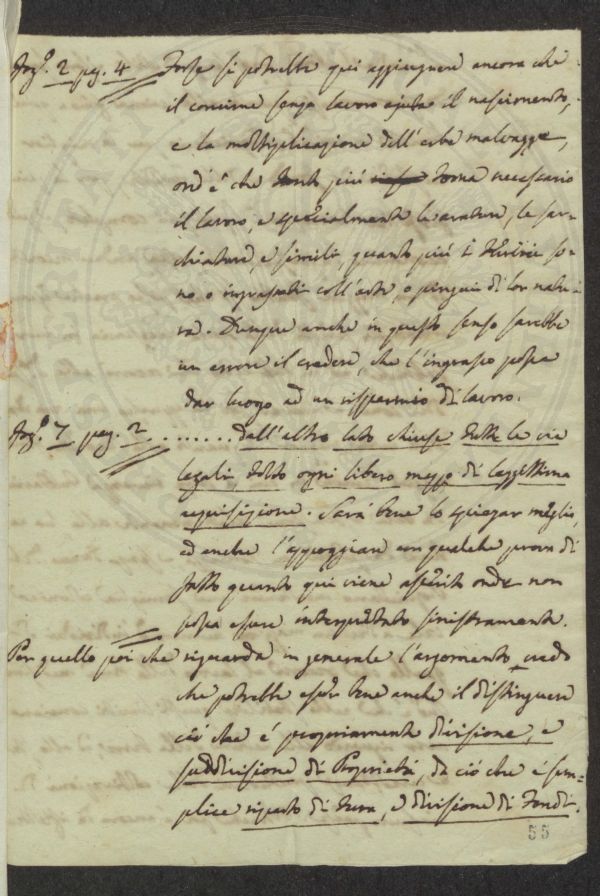 Fog.º 2 pag. 4 Forse si potrebbe quì aggiugnere ancora che
il concime senza lavoro ajuta il nascimento,
e la moltiplicazione dell'erbe malvagge,
ond'è che tanto più torna necessario
il lavoro, e specialmente le arature, le sar-
chiature, e simili, quanto più i terreni so-
no o ingrassati coll'arte, o pingui di lor natu-
ra. Dunque anche in questo senso sarebbe
un errore il credere, che l'ingrasso possa
dar luogo ad un risparmio di lavoro.
Fog.º 7 pag. 2........dall'altro lato chiuse tutte le vie
legali, tolto ogni libero mezzo di
acquisizione. Sarà bene lo spiegar meglio,
ed anche l'appoggiare con qualche prova di
fatto quanto quì viene asserito onde non
possa essere interpretato sinistramente.
Per quello poi che riguarda in generale l'argomento credo
che potrebbe esser bene anche il distinguere
ciò che è propriamente divisione, e
suddivisione di Proprietà, da ciò che è sem-
plice riparto di terra, e divisione di Fondi.
55